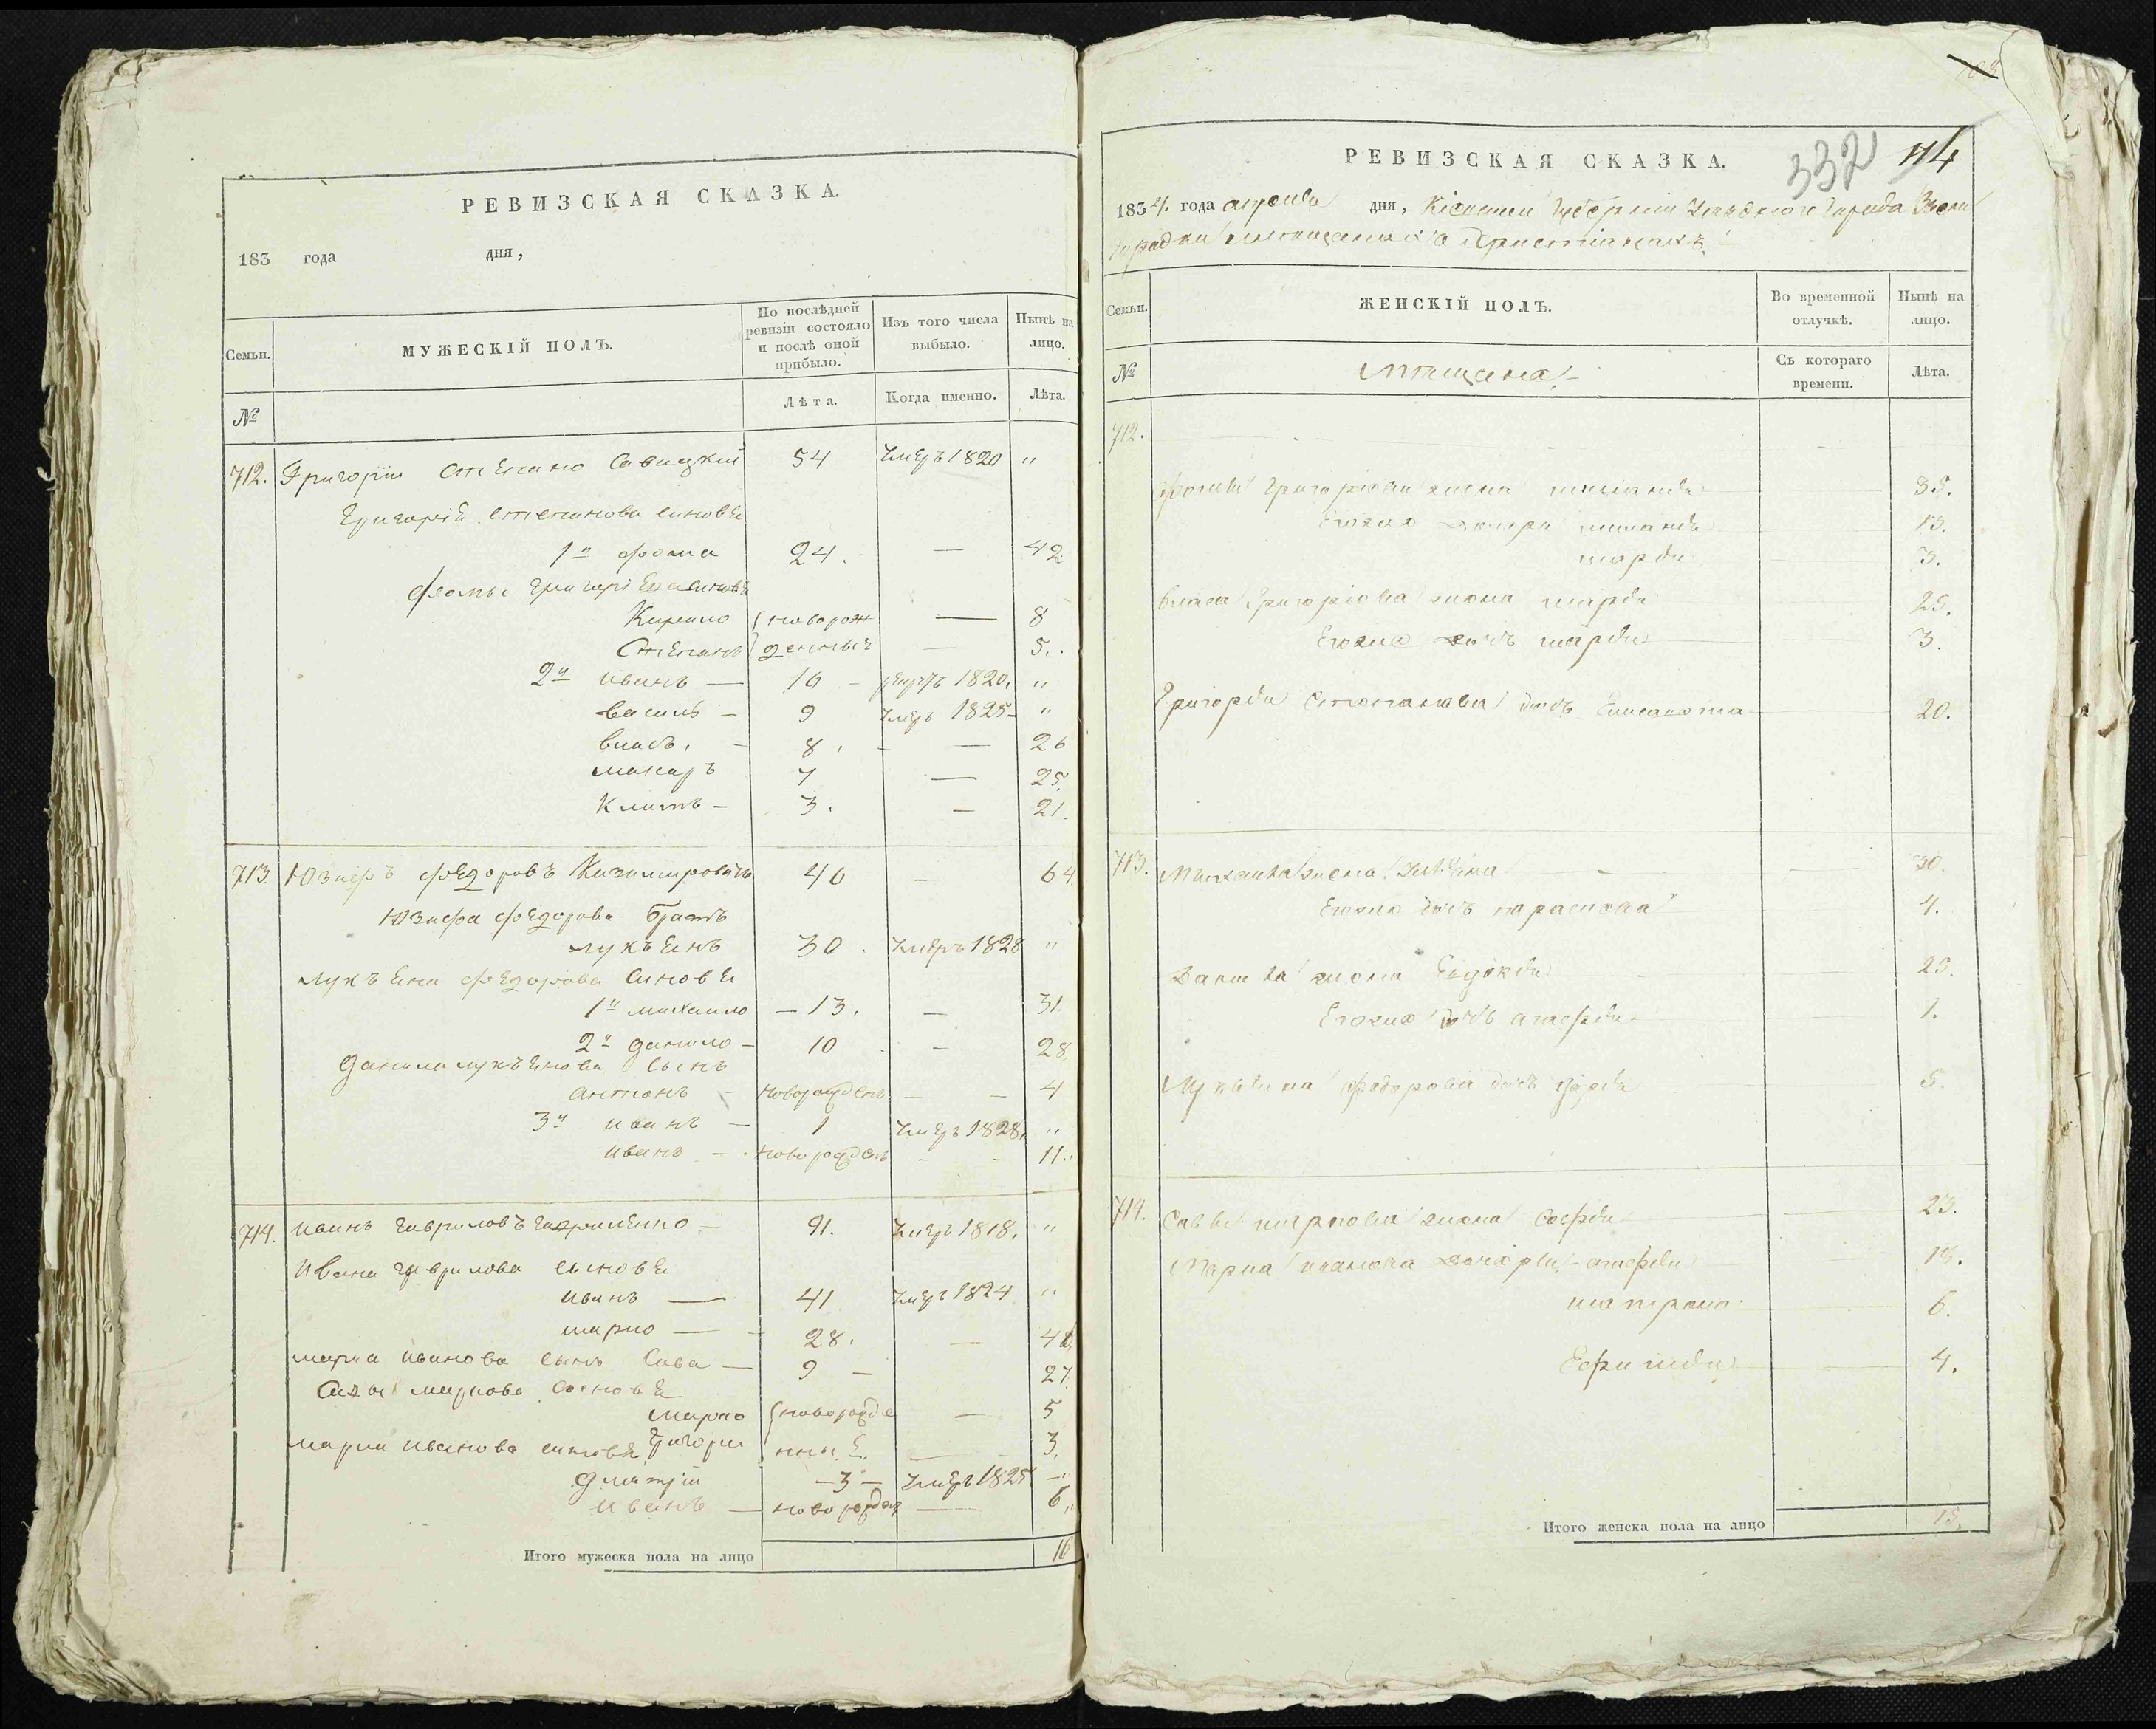 РЕВИЗСКАЯ СКАЗКА.
183 года дня,
Семьи.
МУЖЕСКІЙ ПОЛЪ.
По послѣдней ревизіи состояло и послѣ оной прибыло.
Изъ того числа выбыло.
Нынѣ на лицо.
№
Лѣта.
Когда именно.
Лѣта.
712. Григорій Степано Савицкій 54 Умеръ 1820 "
Григорія Степанова синовя
1й Фома 24. — 42
Фомы Григоріева синовя
Кирило новорож — 8
Степанъ денныя — 5.
2й Иванъ — 16 — 1820. "
Василь — 9 Умеръ 1825 — "
Власъ. — 8. — — 26
Макаръ 7 — 25.
Климъ — 3. — 21.
713. Юзиѳъ Федоровъ Казимировичъ 46 — 64.
Юзифа Федорова братъ
Лукъянъ 30. Умеръ 1828 "
Лукъяна Федорова синовя
1й Михайло — 13. — 31
2й Данило — 10 — 28.
Данила Лукъянова сынъ
Антонъ — новорожденъ — — 4
3й Иванъ — 1 Умеръ 1828. "
Иванъ — новорожденъ — — 11.
714. Иванъ Гавриловъ Гавриленко — 91. Умеръ 1818. "
Ивана Гаврилова сыновя
Иванъ — 41 Умеръ 1824 "
Марко — 28. — 46
Марка Иванова сынъ Сава — 9 — 27.
Савы Маркова сыновя
Марко новорожде — 5
Марка Иванова синовя Григорій нныя — 3.
Дмитрій — 3 — Умеръ 1825. — "
Иванъ — новорожден — 6.
Итого мужеска пола на лицо 16
332 114
РЕВИЗСКАЯ СКАЗКА.
1834. года апреля дня, Кіевской Губерніи Уезднаго Города Звени
городки христіанахъ
Семьи.
ЖЕНСКІЙ ПОЛЪ.
Во временной отлучкѣ.
Нынѣ на лицо.
№
Мещана
Съ котораго времени.
Лѣта.
712.
Фомы Григоріева жена 35.
Егожъ дочери 13.
Марія 3.
Власа Григоріева жена Марія 25.
Егожъ дочь Марія 3.
Григорія Степанова дочь Елисавета 20.
713. Михаила жена Ульяна 30.
Егожъ дочь Параскева 4.
Данила жена Евдокія 25.
Егожъ дочь Агафія 1.
Лукяна Федорова дочь Дарія 5.
714. Саввы Маркова жена Софія 23.
Марка Иванова дочери, — Агафія 13.
Матрона 6.
Ефимія 4.
Итого женска пола на лицо 15.